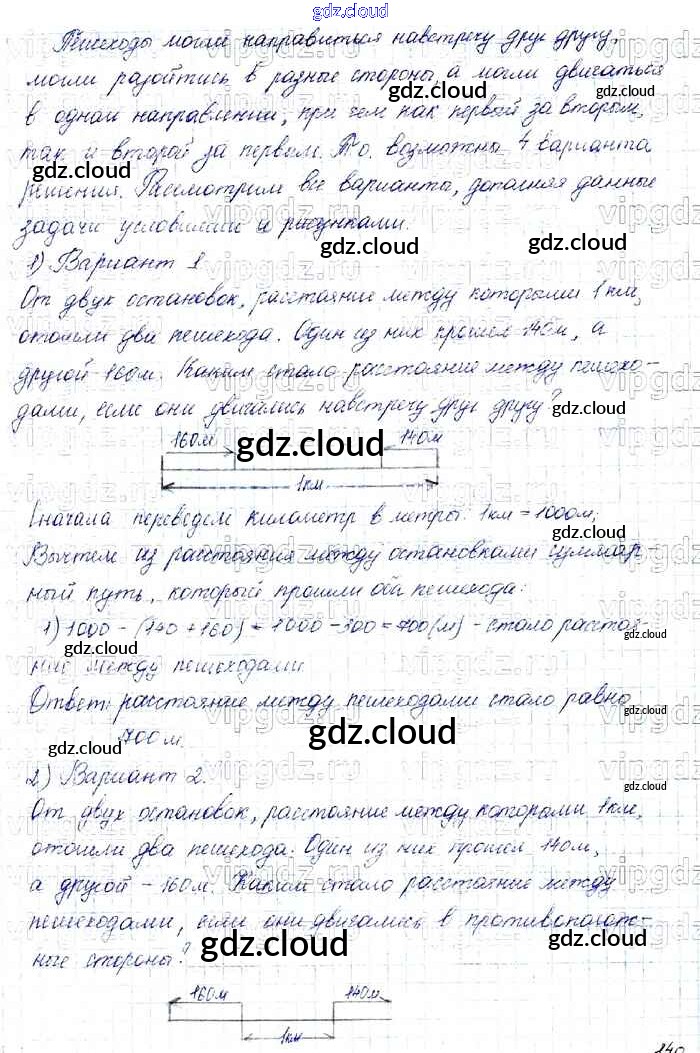 gdz.cloud
Пешеходы могли направиться навстречу друг другу,
могли разойтись в разные стороны а могли двигаться
в одном направлении, при чем как первый за вторым,
так и второй за первым. Т.о. возможны 4 варианта
решения. Рассмотрим все варианты, дополняя данные
задачи условиями и рисунками.
1) Вариант 1
От двух остановок, расстояние между которыми 1 км,
отошли два пешехода. Один из них прошел 140м, а
другой 160м. Каким стало расстояние между пешехо-
дами, если они двигались навстречу друг другу?
160м gdz.cloud 140м
1км
Сначала переведем километр в метры: 1км = 1000м;
Вычтем из расстояния между остановками суммар-
ный путь, который прошли оба пешехода:
1) 1000 - (140 + 160) = 1000 - 300 = 700 (м) - стало расстоя-
ние между пешеходами
Ответ: расстояние между пешеходами стало равно
700 м.
2) Вариант 2.
От двух остановок, расстояние между которыми 1км,
отошли два пешехода. Один из них прошел 140м,
а другой - 160м. Каким стало расстояние между
пешеходами, если они двигались в противополож-
ные стороны?
160м 140м
1км